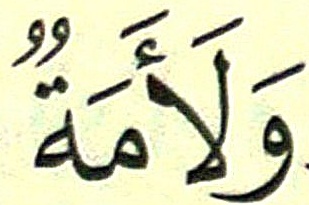 وَلَأَمَةٌ